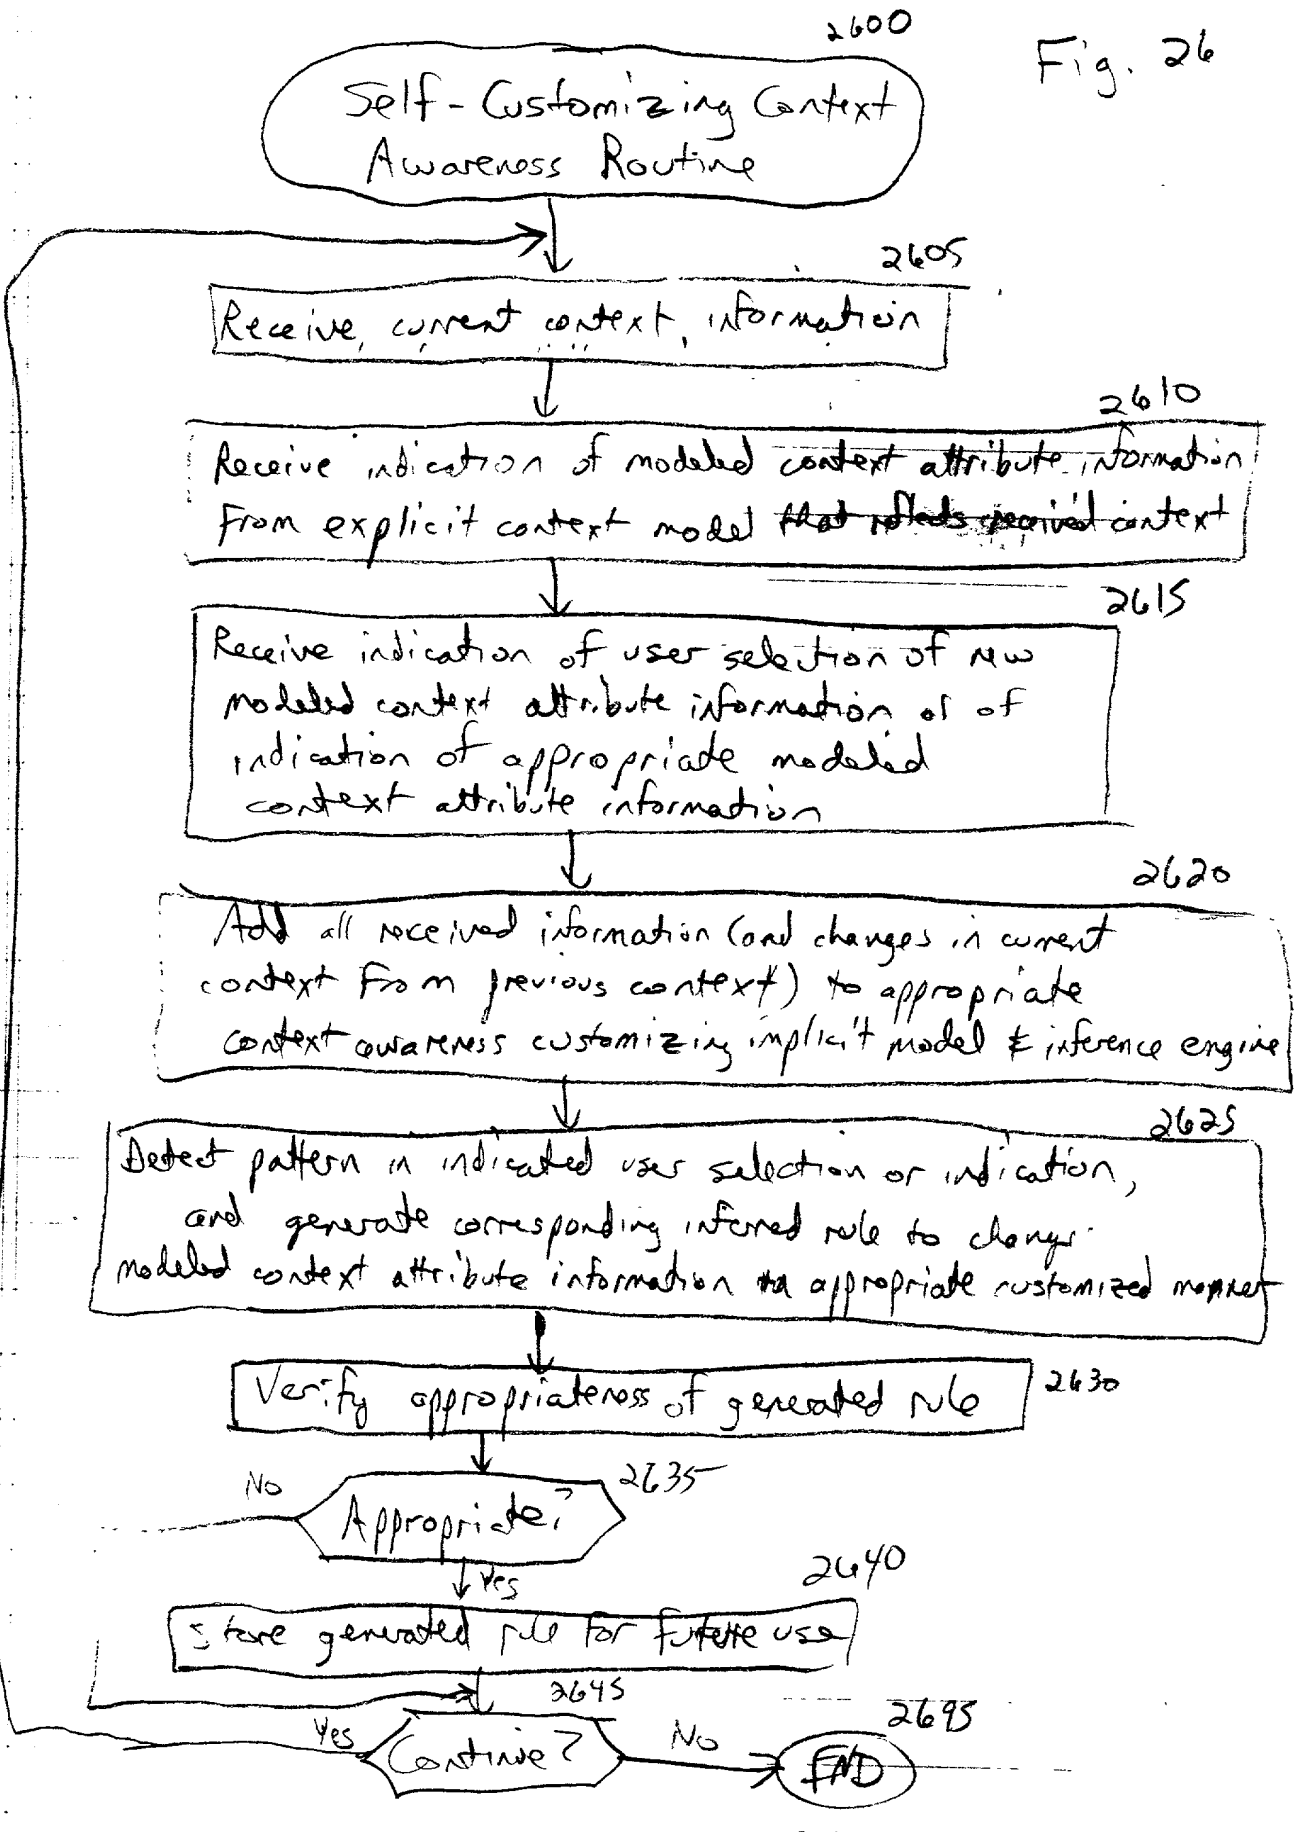 2600
Fig. 26
Self-Customizing Context
Awareness Routine
2605
Receive current context information
2610
Receive indication of modeled context attribute information
from explicit context model that reflects received context
2615
Receive indication of user selection of new
modeled context attribute information or of
indication of appropriate modeled
context attribute information
2620
Add all received information (and changes in current
context from previous context) to appropriate
context awareness customizing implicit model & inference engine
2625
Detect pattern in indicated user selection or indication,
and generate corresponding inferred rule to change
modeled context attribute information in appropriate customized manner
Verify appropriateness of generated rule
2630
No
2635
Appropriate?
Yes
2640
Store generated rule for future use
2645
2695
Yes
Continue?
No
END